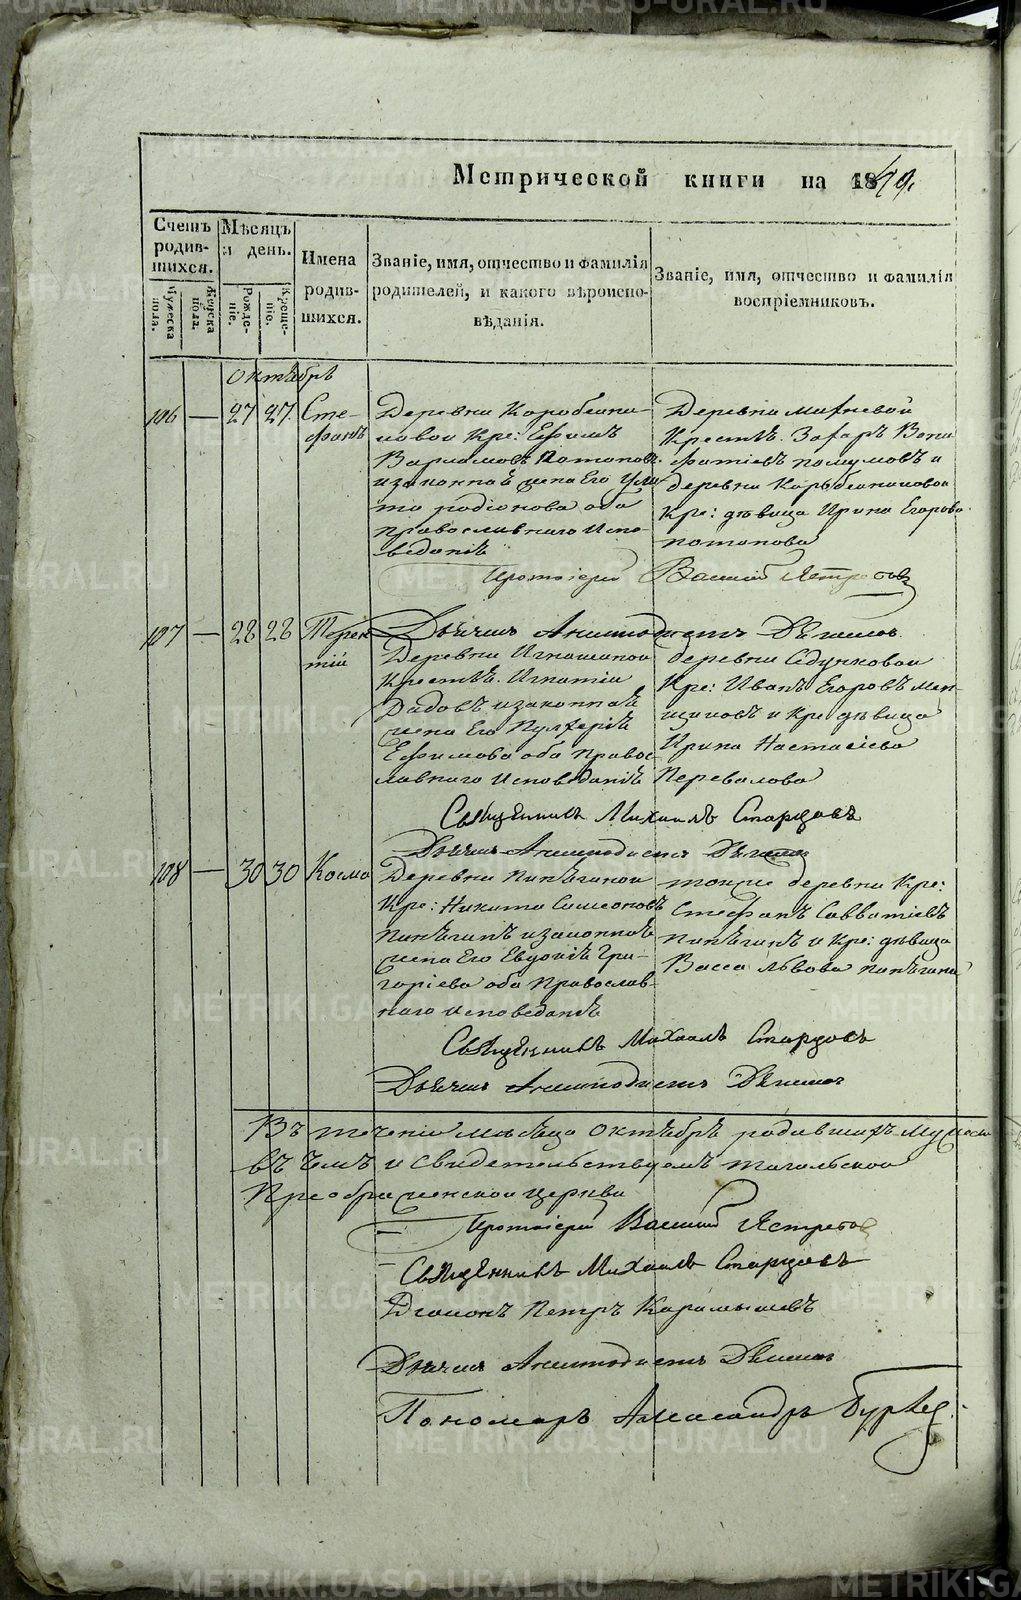 METRIKI.GASO-URAL.RU
Метрической книги на 1849.
Счетъ родив-шихся.
Мужеска пола.
Женска пола.
Мѣсяцъ и день.
Рожде-ніе.
Креще-ніе.
Имена родив-шихся.
Званіе, имя, отчество и фамилія
родителей, и какого вѣроиспо-
вѣданія.
Званіе, имя, отчество и фамилія
воспріемниковъ.
Октябрь
106 — 27 27. Сте-
фанъ
Деревни Коробейни-
ковой Кре: Ефимъ
Варламовъ Потаповъ
и законная жена его Ули
та родіонова оба
православнаго испо-
веданія
Деревни
Крестья. Захаръ Вони
фатіевъ и
деревни
Кре: дѣвица Ирина Егорова
потапова
Протоіерей Василій Ястребовъ
107 — 28 28 Терен
тій
Дьячекъ
Деревни Игнашиной
Крестья. Игнатій
и законная
жена Его Пулхерія
Ефимова оба Правос
лавнаго исповеданія
деревни
Кре: Иванъ Егоровъ Мен-
щиковъ и Кре: дѣвица
Ирина
Перевалова
Священникъ Михаилъ Старцовъ
Дьячекъ
108 — 30 30 Косма
Деревни Пинягиной
Кре: Никита Симеоновъ
Пинягинъ и законная
жена Его Евдокія Гри-
горіева оба Православ-
наго исповеданія
тойже деревни Кре:
Стефанъ Савватіевъ
пинягинъ и Кре: дѣвица
Васса Львова пинягина
Священникъ Михаилъ Старцовъ
Дьячекъ
Въ теченіи месяца Октября родившихъ мужеска
въ чемъ и свидетельствуемъ Тагильской
Преображенской церкви
Протоіерей Василій Ястребовъ
Священникъ Михаилъ Старцовъ
Діаконъ Петръ Карамышевъ
Дьячекъ
Пономарь Александръ